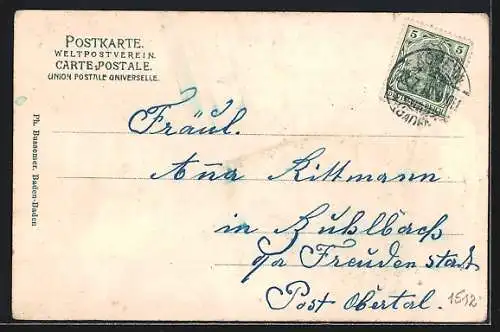 POSTKARTE.
WELTPOSTVEREIN.
CARTE POSTALE.
UNION POSTALE UNIVERSELLE.
5 5
DEUTSCHES REICH
Ph. Bussemer, Baden-Baden
Fräul.
Anna Rittmann
in Buhlbach
o/a Freudenstadt
Post Obertal.
1512